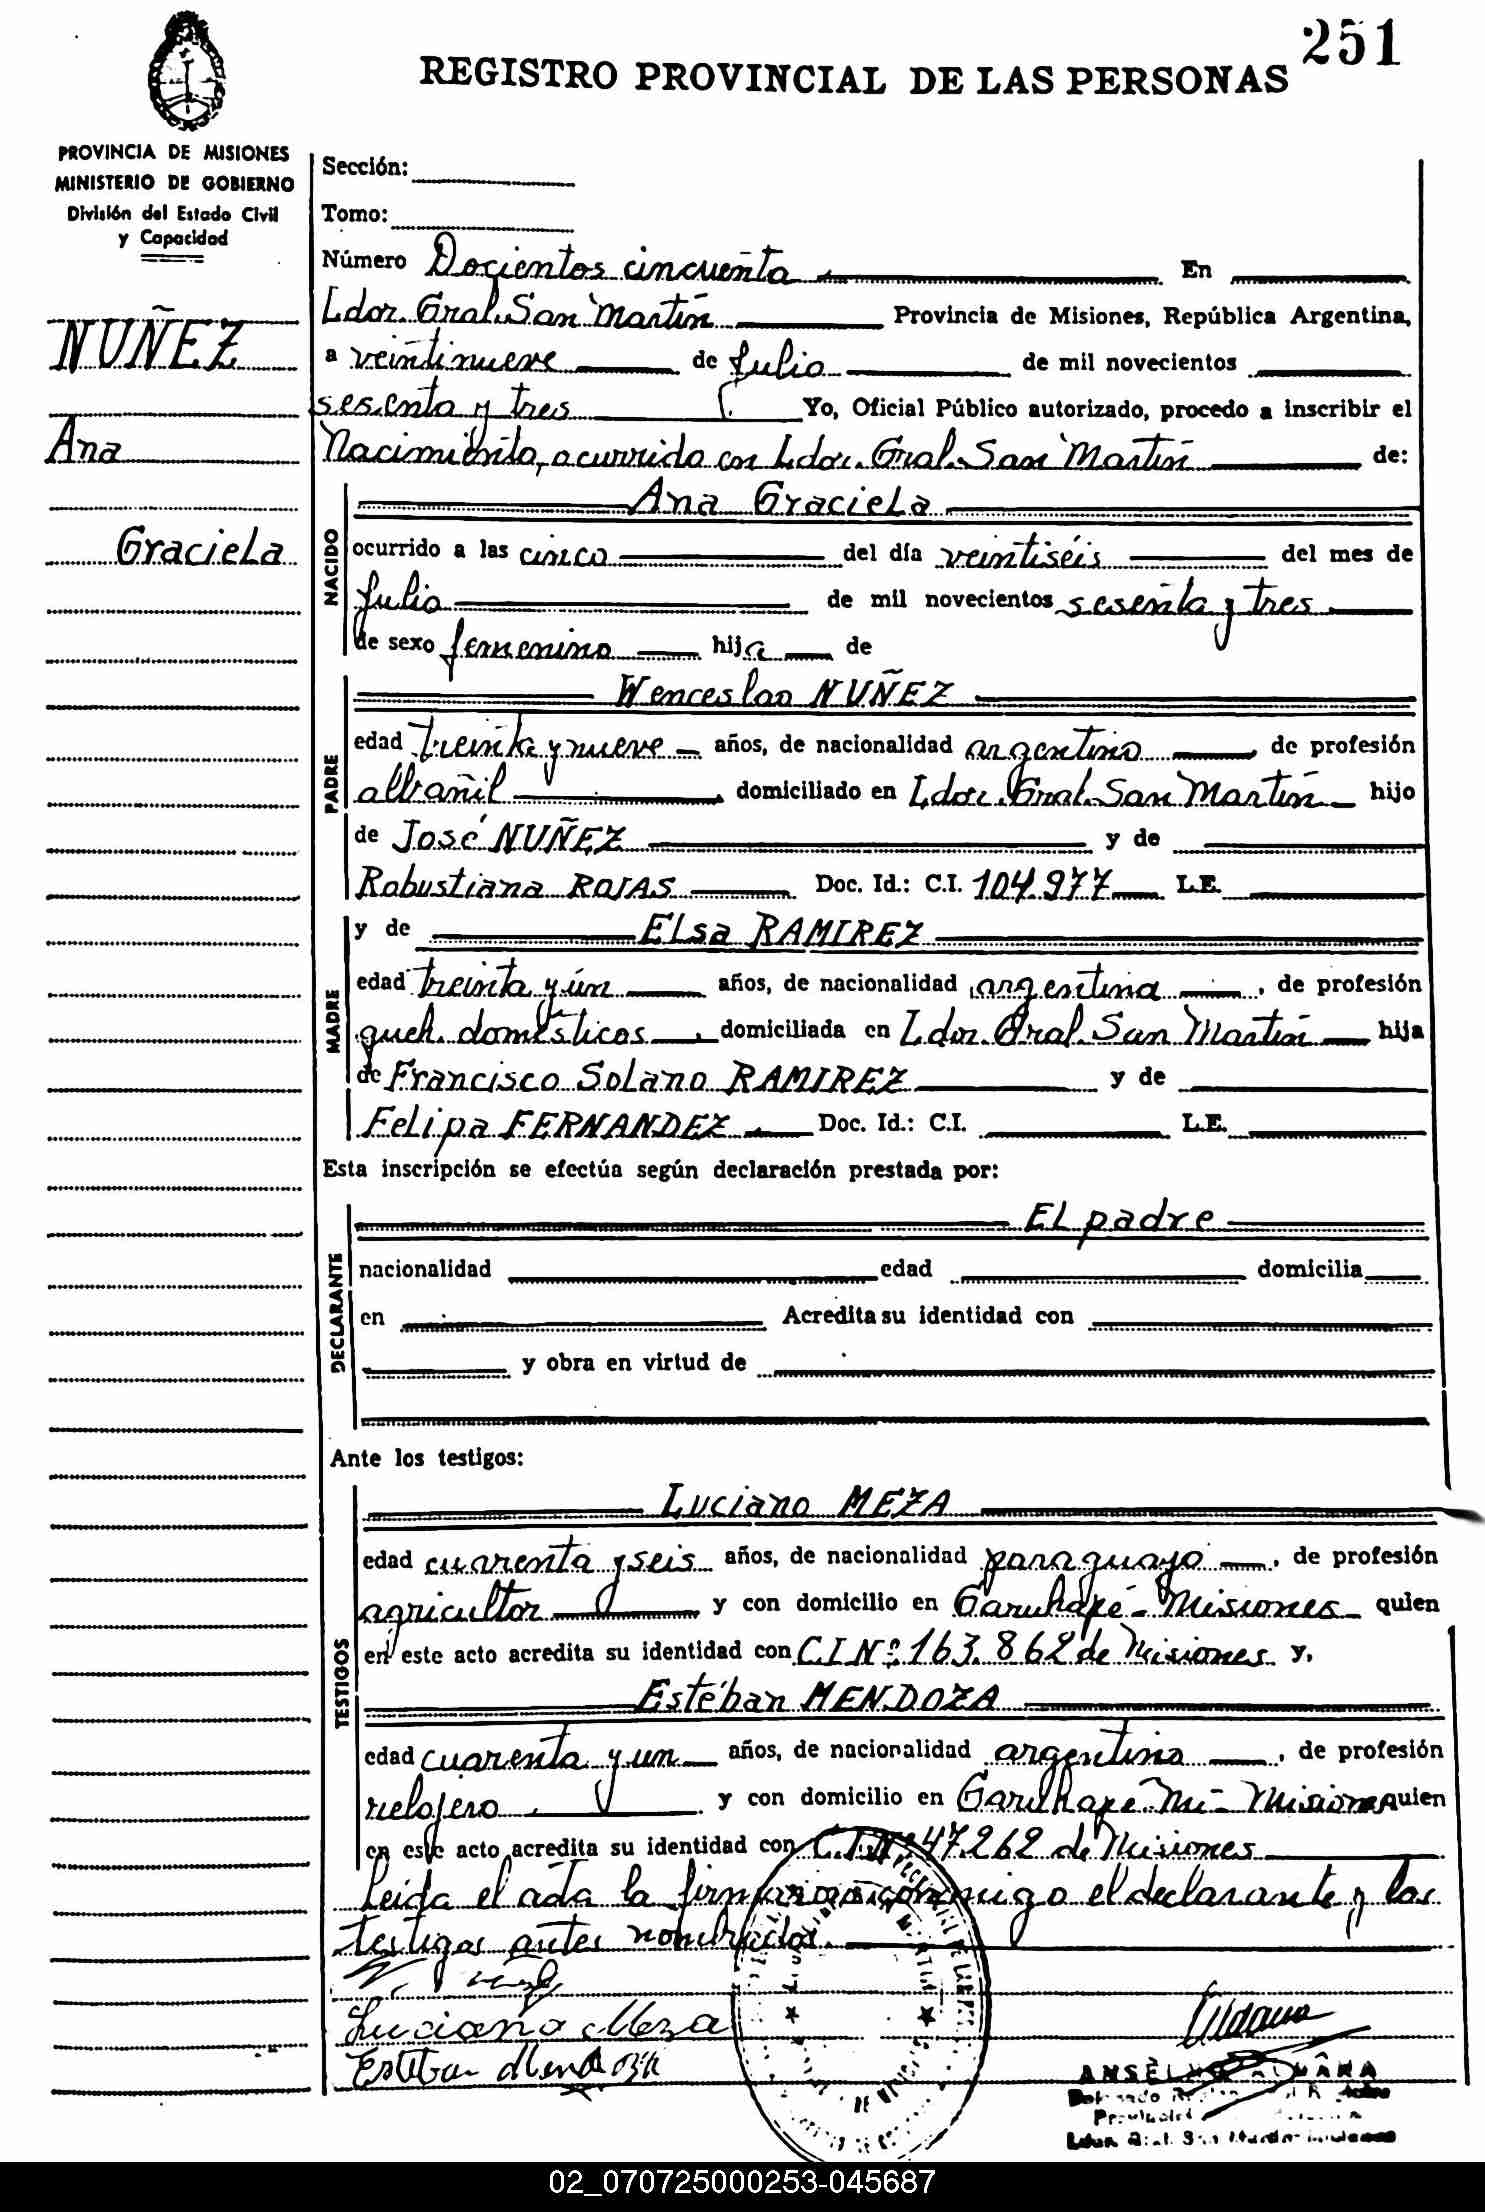 251
REGISTRO PROVINCIAL DE LAS PERSONAS
PROVINCIA DE MISIONES
MINISTERIO DE GOBIERNO
División del Estado Civil
y Capacidad
NUÑEZ
Ana
Graciela
Sección:
Tomo:
Número Docientos cincuenta En
Ldor. Gral. San Martín Provincia de Misiones, República Argentina,
a veintinueve de Julio de mil novecientos
sesenta y tres Yo, Oficial Público autorizado, procedo a inscribir el
Nacimiento, ocurrido en Ldor. Gral. San Martín de:
NACIDO
Ana Graciela
ocurrido a las cinco del día veintiséis del mes de
Julio de mil novecientos sesenta y tres
de sexo femenino hija de
PADRE
Wenceslao NUÑEZ
edad treinta y nueve años, de nacionalidad argentino, de profesión
albañil domiciliado en Ldor. Gral. San Martín hijo
de José NUÑEZ y de
Robustiana ROJAS Doc. Id.: C.I. 104.977 L.E.
MADRE
y de Elsa RAMIREZ
edad treinta y un años, de nacionalidad argentina, de profesión
queh. domésticos, domiciliada en Ldor. Gral. San Martín hija
de Francisco Solano RAMIREZ y de
Felipa FERNANDEZ. Doc. Id.: C.I. L.E.
Esta inscripción se efectúa según declaración prestada por:
DECLARANTE
El padre
nacionalidad edad domicilia
en Acredita su identidad con
y obra en virtud de
Ante los testigos:
TESTIGOS
Luciano MEZA
edad cuarenta y seis años, de nacionalidad paraguayo, de profesión
agricultor y con domicilio en Garuhapé - Misiones quien
en este acto acredita su identidad con C.I.Nº 163.862 de Misiones y,
Estéban MENDOZA
edad cuarenta y un años, de nacionalidad argentino, de profesión
relojero y con domicilio en Garuhapé-Mi- Misiones quien
en este acto acredita su identidad con C.I.Nº 47.262 de Misiones
Leída el acta la firmaron conmigo el declarante y los
testigos antes nombrados.
Luciano Meza
Esteban Mendoza
02_070725000253-045687